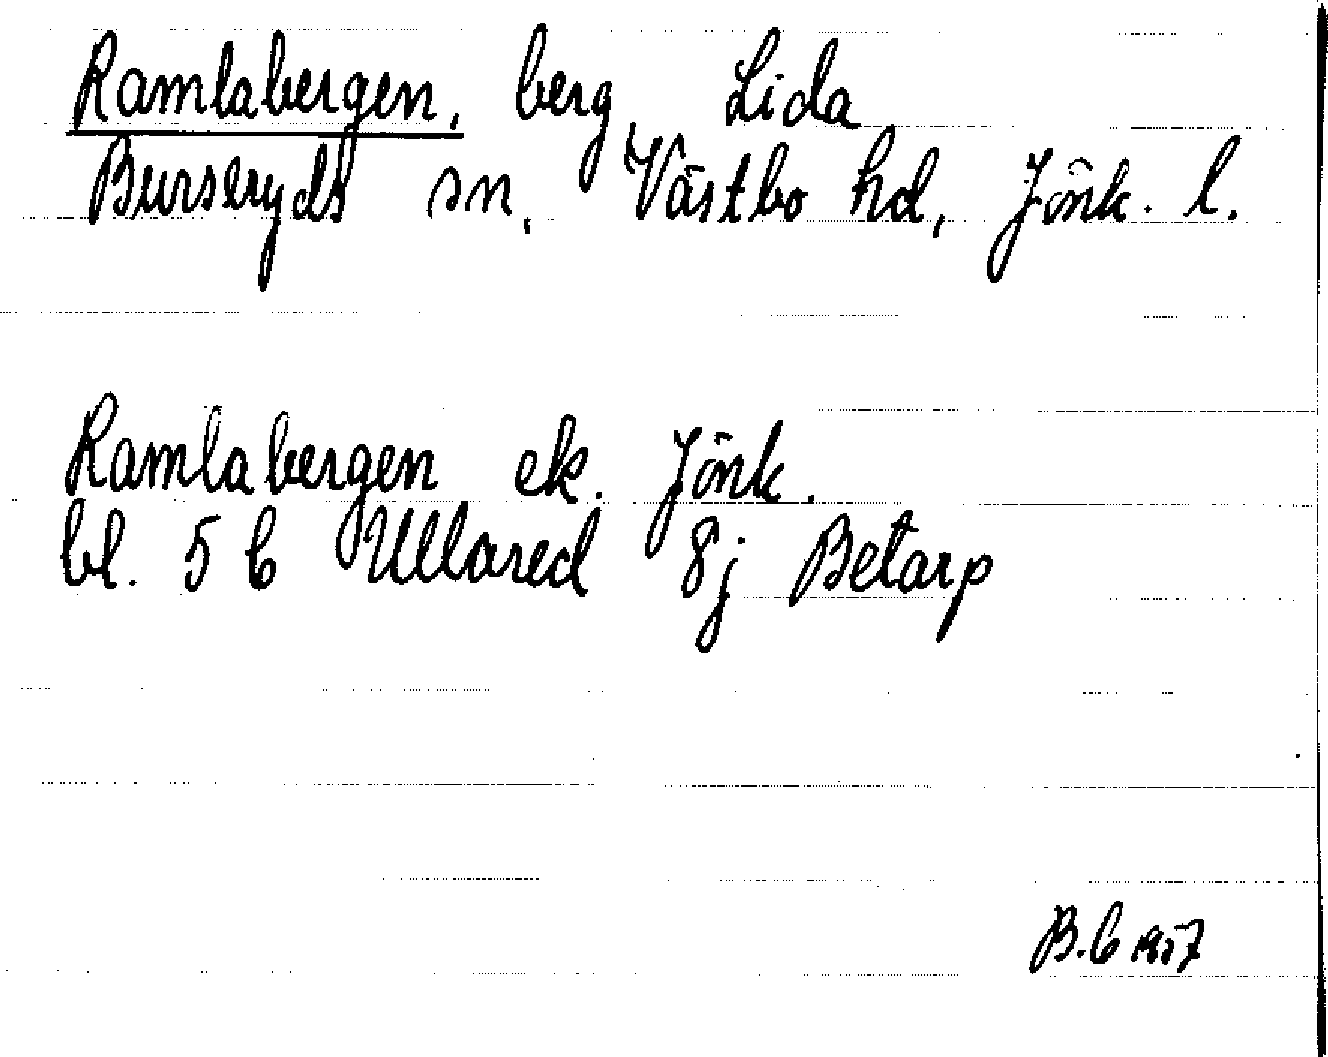 Ramlabergen, berg, Lida
Burseryds sn, Västbo hd, Jönk. l.
Ramlabergen ek. Jönk.
bl. 5 b Ullared 8j Betarp
B.C 1957